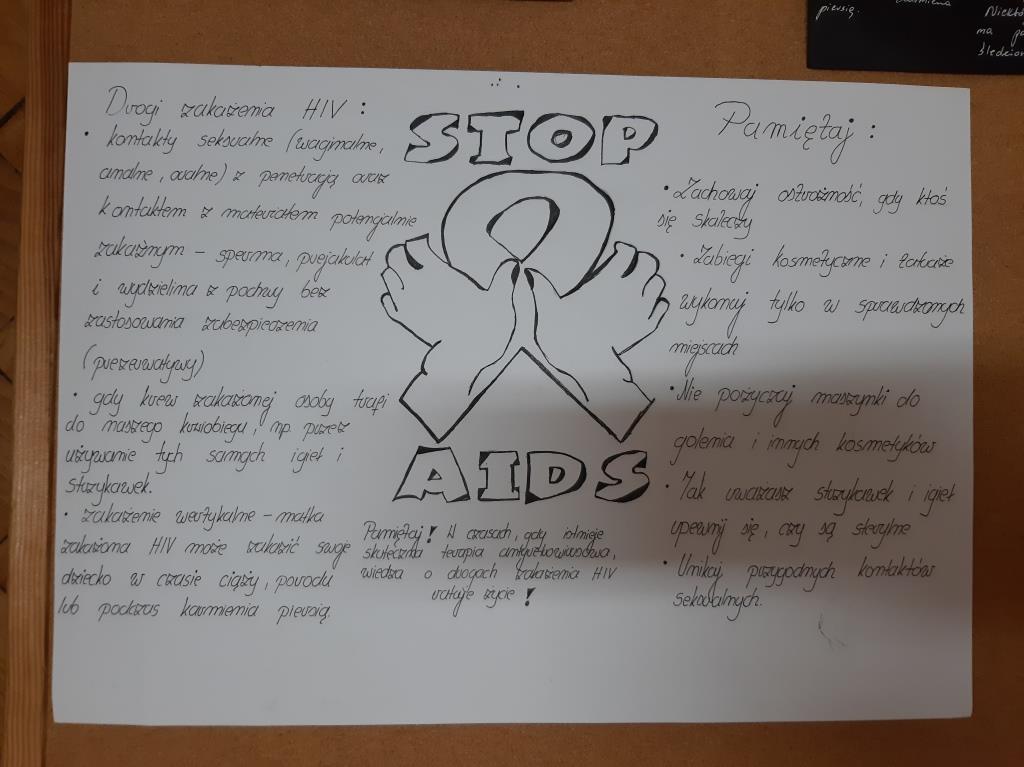 Drogi zakażenia HIV :
• kontakty seksualne (waginalne,
analne, oralne) z penetracją oraz
kontaktem z materiałem potencjalnie
zakaźnym - sperma, preejakulat
i wydzielina z pochwy bez
zastosowania zabezpieczenia
(prezerwatywy)
• gdy krew zakażonej osoby trafi
do naszego krwiobiegu, np. przez
używanie tych samych igieł i
strzykawek.
• zakażenie wertykalne - matka
zakażona HIV może zakazić swoje
dziecko w czasie ciąży, porodu
lub podczas karmienia piersią.
STOP
AIDS
Pamiętaj! W czasach, gdy istnieje
skuteczna terapia antyretrowirusowa,
wiedza o drogach zakażenia HIV
ratuje życie!
Pamiętaj :
• Zachowaj ostrożność, gdy ktoś
się skaleczy
• Zabiegi kosmetyczne i tatuaże
wykonuj tylko w sprawdzonych
miejscach
• Nie pożyczaj maszynki do
golenia i innych kosmetyków
• Jak uważasz strzykawek i igieł
upewnij się, czy są sterylne
• Unikaj przygodnych kontaktów
seksualnych.
piersią.
Niektó
ma
śledzion